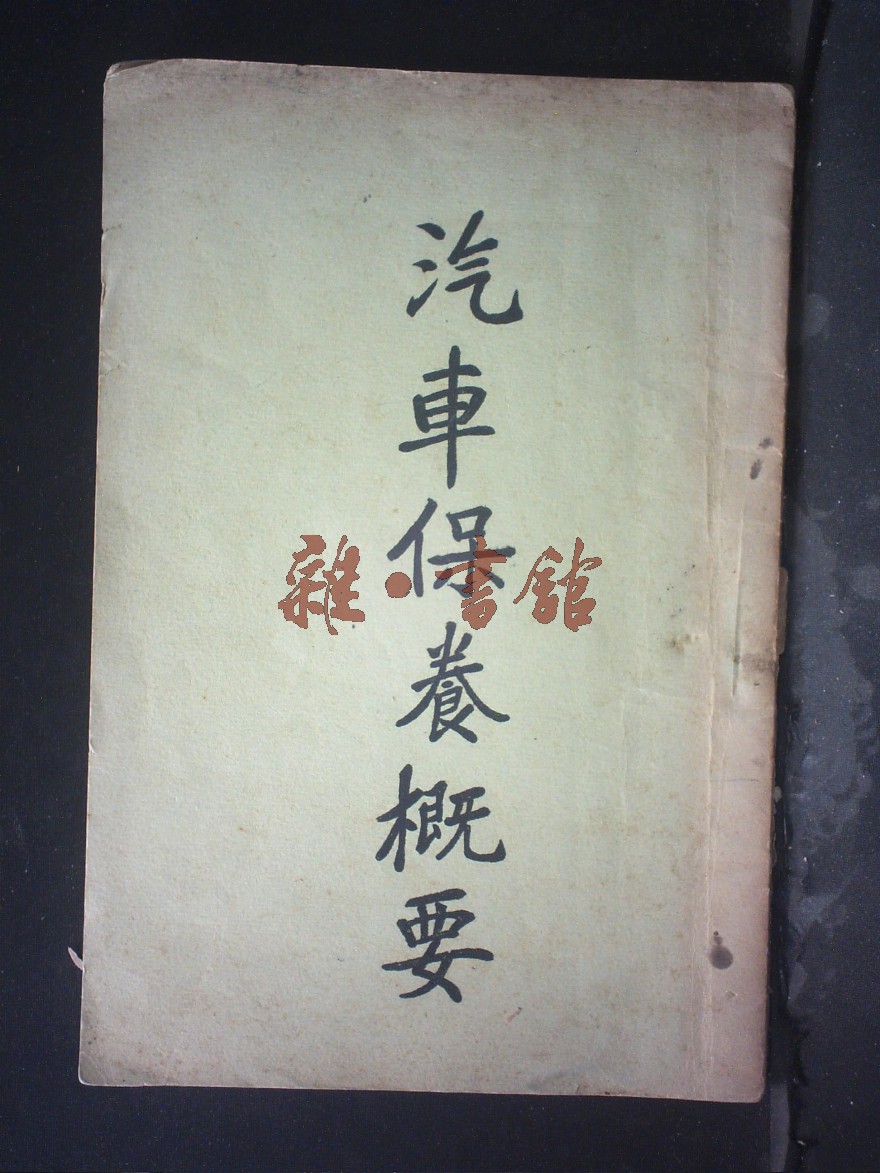 汽車保養概要
雜·書館